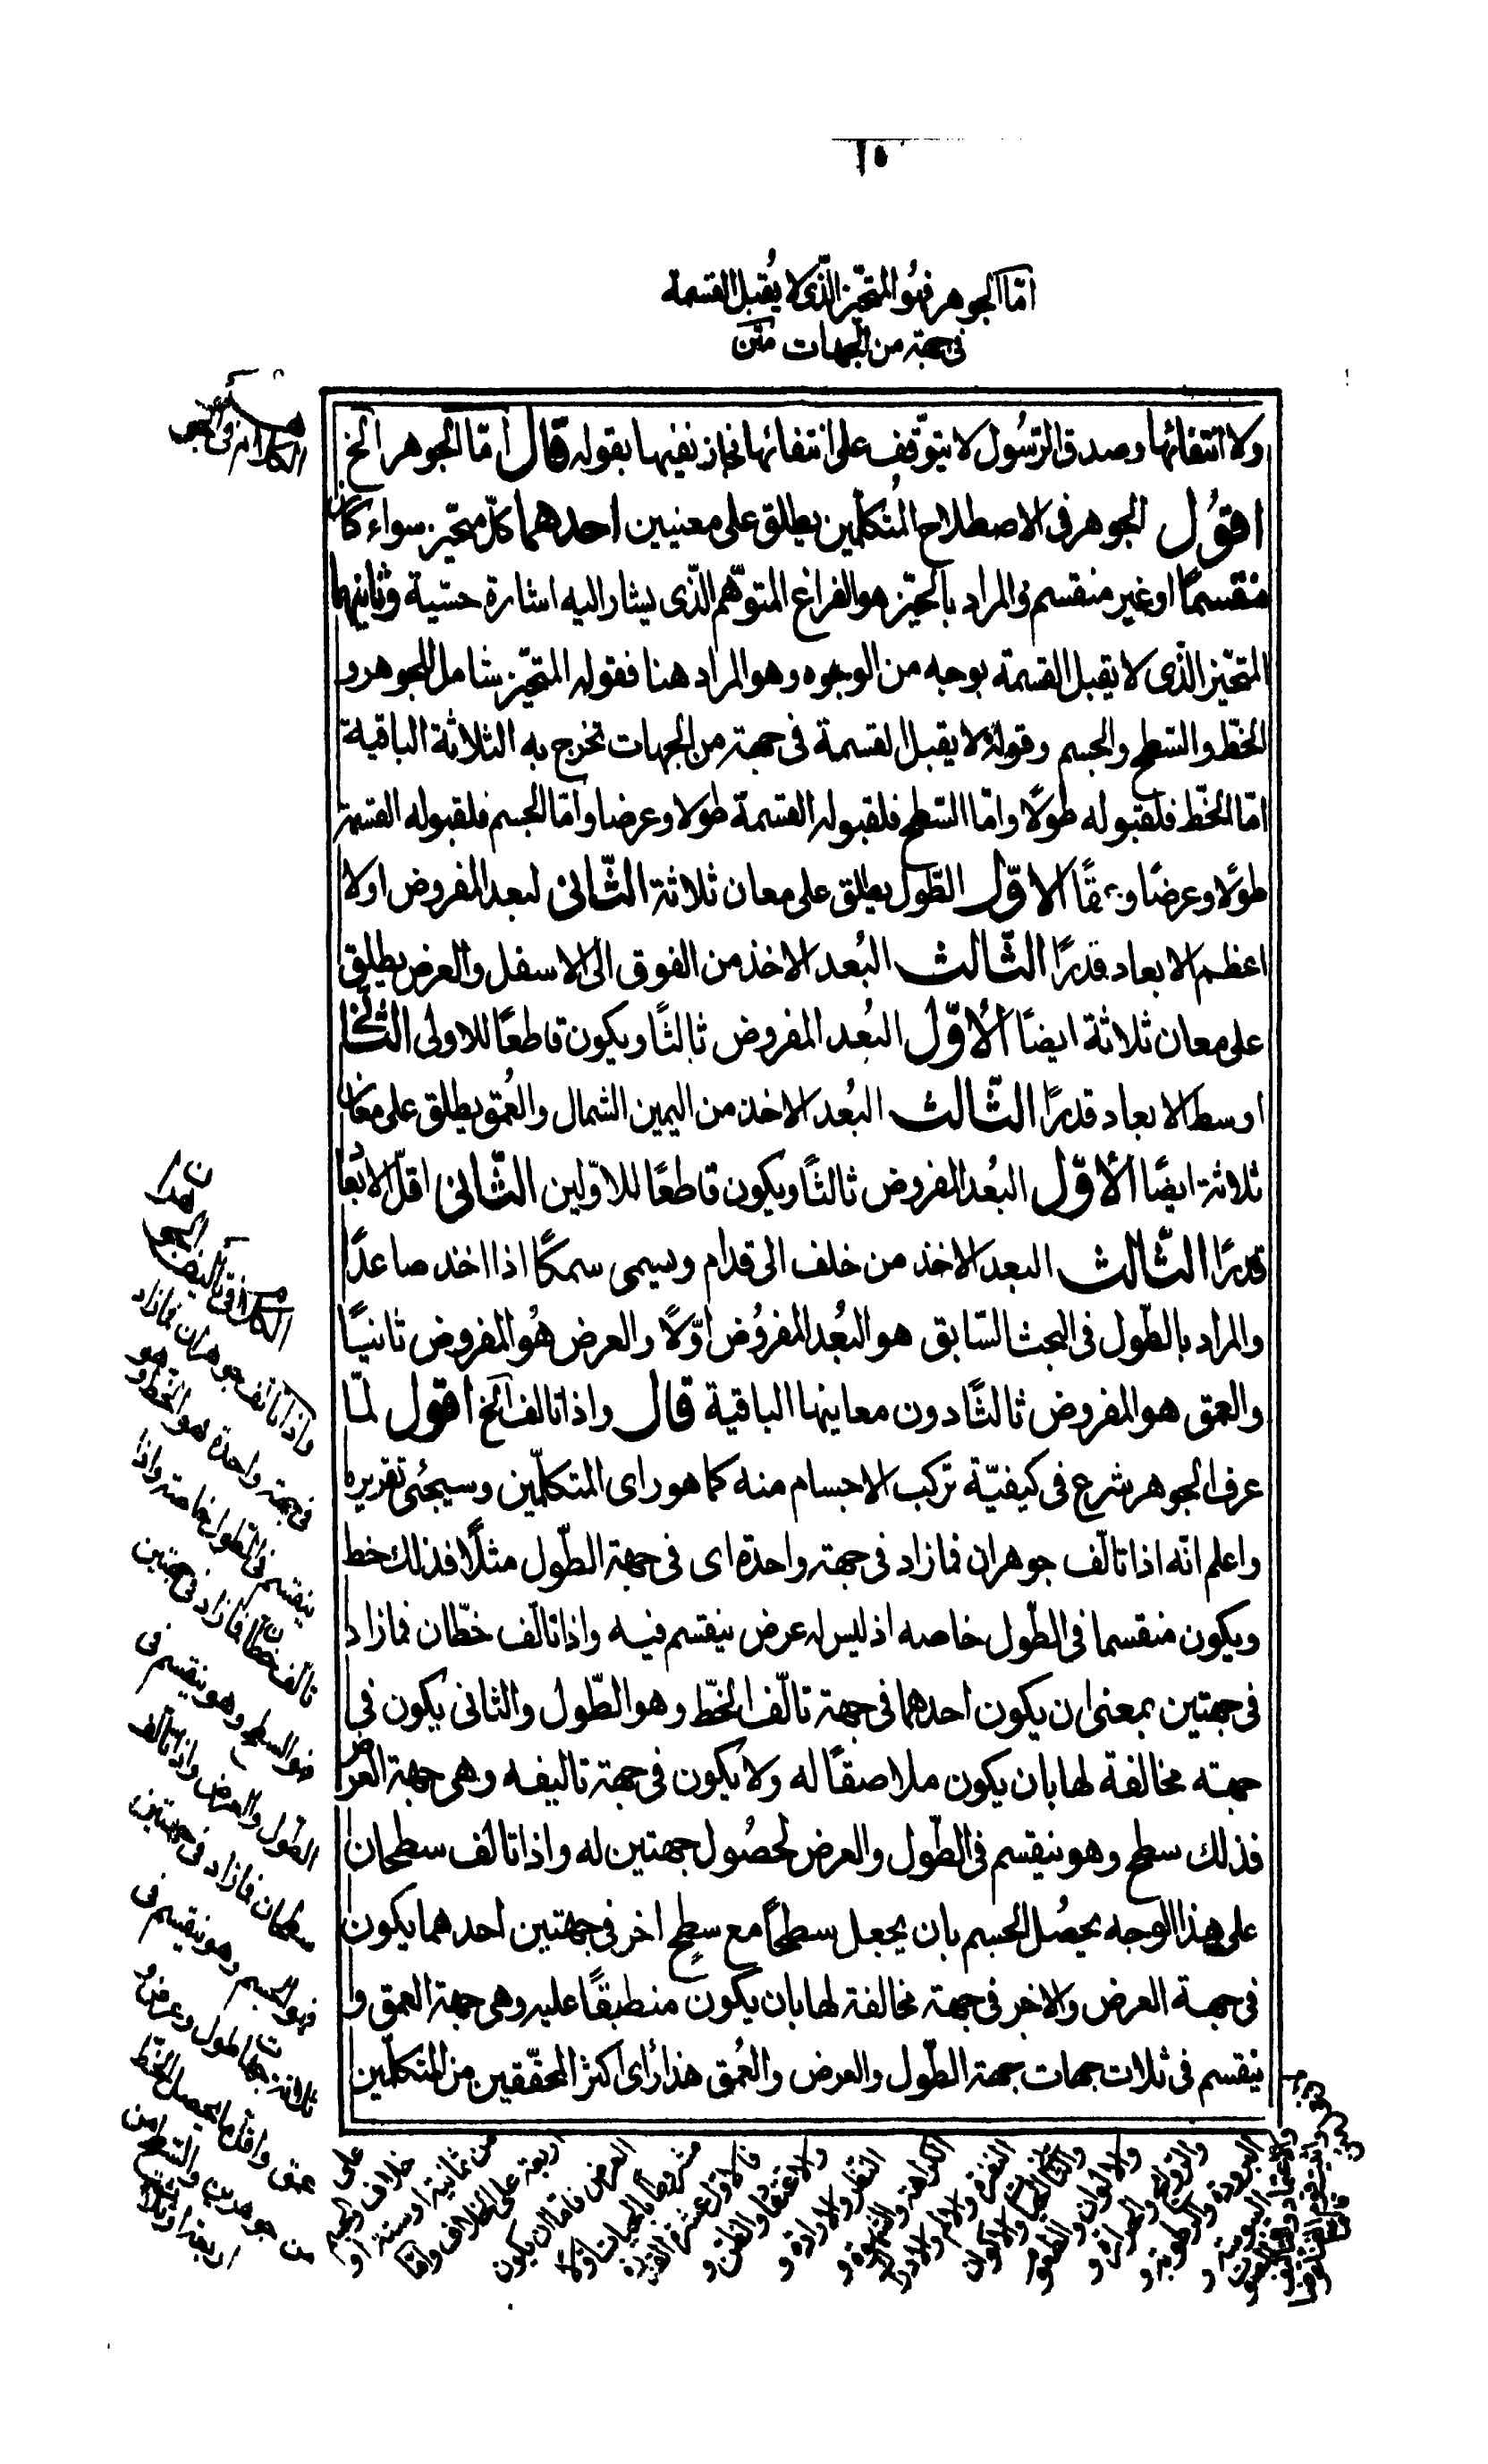 ١٥
امّا الجوهر فهُو المتحيّز الّذى لا يُقبل القسمة
فى جهة من الجهات متن
الكلام فى الجوهر
ولا انتفائها وصدق الرّسُول لا يتوّقف على انتفائها فجاز نفيها بقوله قال امّا الجوهر الخ
اقوُل الجوهر فى الاصطلاح المُتكلّمين يطلق على معنيين احدهما كلّ متحيّز سواء كان
منقسمًا او غير منقسم والمراد بالحيّز هو الفراغ المتوّهم الّذى يشار اليه اشارة حسّية وثانيهما
المتحّيز الّذى لا يقبل القسمة بوجه من الوجوه وهو المراد هنا فقوله المتحيّز شامل للجوهر و
الخطّ والسّطح والجسم وقولهُ لا يقبل القسمة فى جهة من الجهات تخرج به الثلاثة الباقية
امّا الخطّ فلقبوله طولًا وامّا السّطح فلقبوله القسمة طولا وعرضا وامّا الجسم فلقبوله القسمة
طولًا وعرضًا وعمقًا الاوّل الطّول يطلق على معان ثلاثة الثّانى لبعد المفروض اولا
اعظم الابعاد قدرًا الثّالث البُعد الاخذ من الفوق الى الاسفل والعرض يطلق
على معان ثلاثة ايضًا الأوّل البُعد المفروض ثالثًا ويكون قاطعًا للاولى الثّانى
اوسط الابعاد قدرًا الثّالث البُعد الاخذ من اليمين الشمال والعُمق يطلق على معان
ثلاثة ايضًا الأوّل البُعد المفروض ثالثًا ويكون قاطعًا للاوّلين الثّانى اقلّ الابعا
قدرًا الثّالث البعد الاخذ من خلف الى قدام ويسمى سمكًا اذا اخذ صاعدًا
والمراد بالطّول فى البحث السّابق هو البُعد المفروُض اوّلًا والعرض هُو المفروض ثانيًا
والعمق هو المفروض ثالثًا دون معاينها الباقية قال واذا تالف الخ اقول لمّا
عرف الجوهر شرع فى كيفيّة تركب الاجسام منه كما هو راى المتكلّمين وسيجئى تقريره
واعلم انّه اذا تالّف جوهران فما زاد فى جهة واحدة اى فى جهة الطّول مثلًا فذلك خط
ويكون منقسما فى الطّول خاصه اذ ليس له عرض ينقسم فيه واذا تالّف خطّان فما زاد
فى جهتين بمعنى ان يكون احدهما فى جهة تالّف الخطّ وهو الطّول والثانى يكون فى
جهته مخالفة لها بان يكون ملاصقًا له ولا يكون فى جهة تاليفه وهى جهة العرض
فذلك سطح وهو ينقسم فى الطّول والعرض لحصُول جهتين له واذا تالف سطحان
على هذا الوجه يحصُل الجسم بان يجعل سطحًا مع سطح اخر فى جهتين احدهما يكون
فى جهة العرض والاخر فى جهة مخالفة لها بان يكون منطبقًا عليه وهى جهة العمق و
ينقسم فى ثلاث جهات جهة الطّول والعرض والعُمق هذا رأى اكثر المحقّقين من المتكلّمين
الكلام فى تاليف الجو
هران
واذا تالف جوهران فما زاد
فى جهة واحدة فهو الخطّ وهو
ينقسم فى الطّول خاصة واذا
تالّف خطّان فما زاد فى جهتين
فهو السطح وهو ينقسم فى
الطّول والعرض واذا تالف
سطحان فما زاد فى جهتين
فهو الجسم وهو ينقسم فى
ثلاثة جهات طول وعرض و
عمق واقلّ ما يحصل الخطّ
من جوهرين والسّطح من
اربعة او ثلاثة
على
خلاف والجسم
من ثمانية او ستة او
اربعة على الخلاف وامّا
العرض فامّا ان يكون
مشروطًا بالحياة او لا
فالاوّل عشرة القدرة
والاعتقاد والظنّ و
النّظر والارادة و
الكراهة والشهوة و
النّفرة والالم